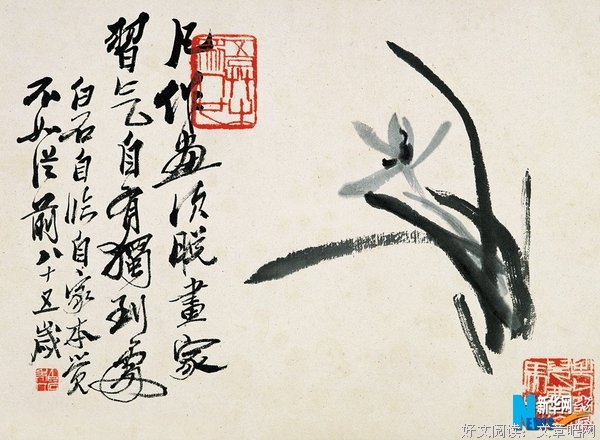 凡作畫須脱畫家
習气自有獨到處
白石自臨自家本覺
不如從前八十五歲
新华网
NEWS
好文阅读：文章吧网